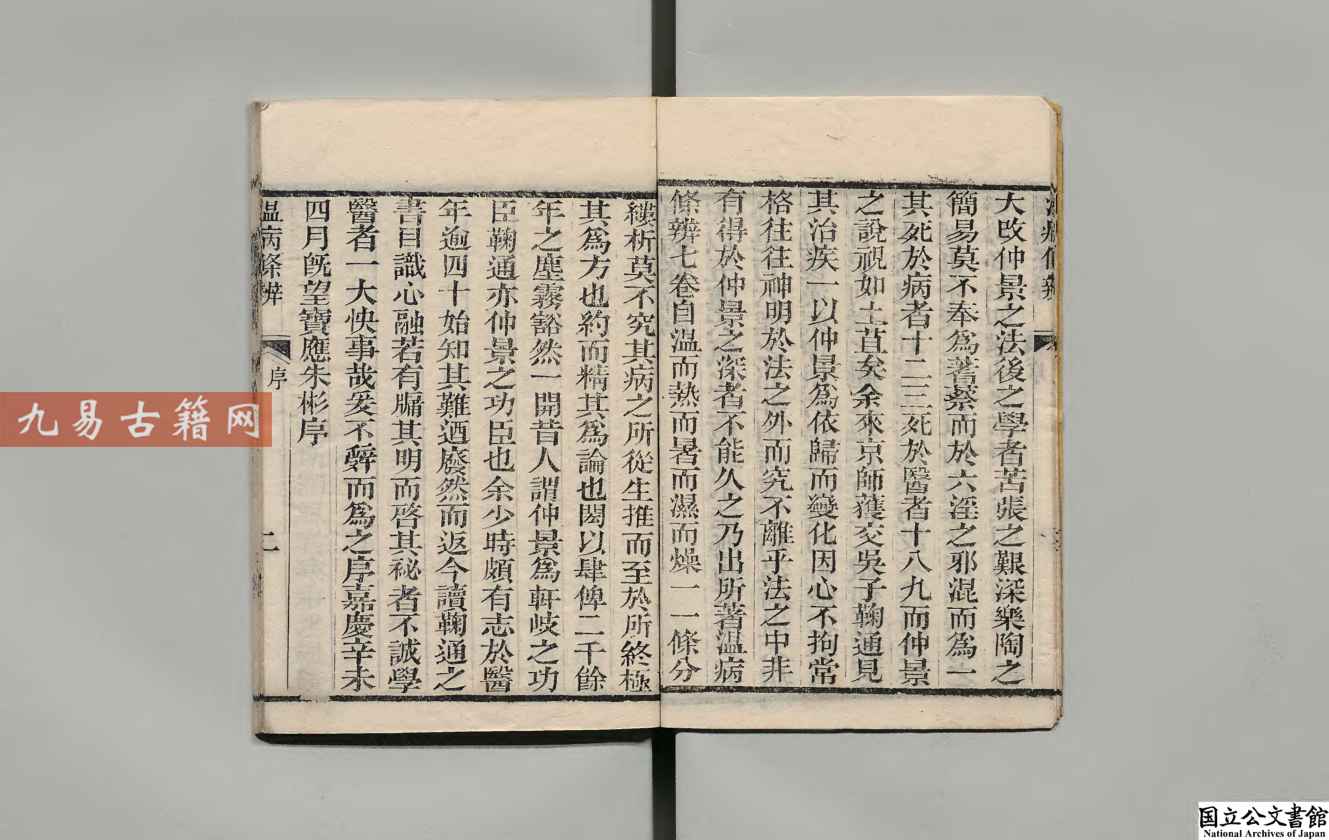 溫病條辨
大改仲景之法後之學者苦張之艱深樂陶之
簡易莫不奉爲蓍蔡而於六淫之邪混而爲一
其死於病者十二三死於醫者十八九而仲景
之說視如土苴矣余來京師獲交吳子鞠通見
其治疾一以仲景爲依歸而變化因心不拘常
格往往神明於法之外而究不離乎法之中非
有得於仲景之深者不能久之乃出所著温病
條辨七卷自温而熱而暑而濕而燥一一條分
縷析莫不究其病之所從生推而至於所終極
其爲方也約而精其爲論也閎以肆俾二千餘
年之塵霧豁然一開昔人謂仲景爲軒岐之功
臣鞠通亦仲景之功臣也余少時頗有志於醫
年逾四十始知其難迺廢然而返今讀鞠通之
書目識心融若有牖其明而啓其祕者不誠學
醫者一大快事哉爰不辭而爲之序嘉慶辛未
四月旣望寶應朱彬序
温病條辨
序
二
九易古籍网
国立公文書館
National Archives of Japan